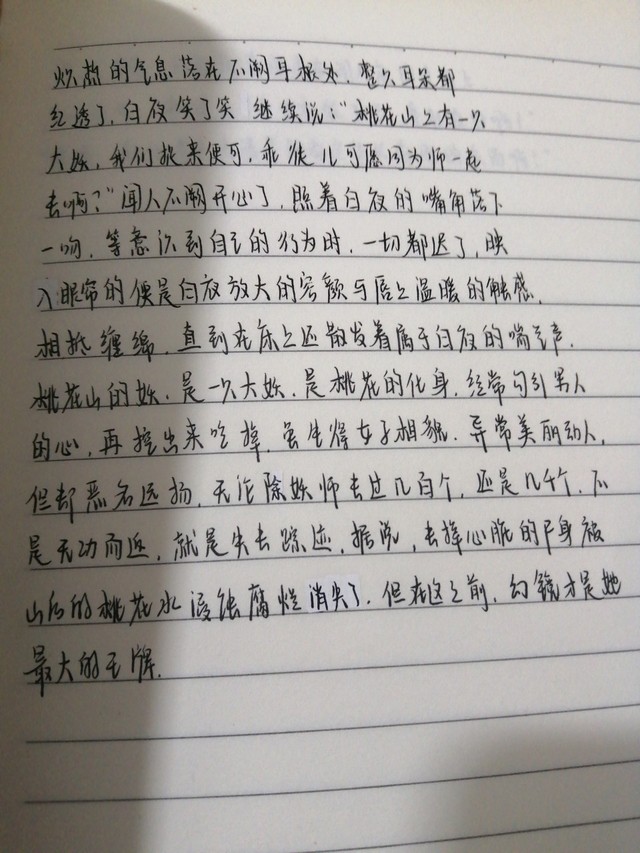 炽热的气息落在不阙耳根处，整只耳朵都
红透了，白夜笑了笑 继续说："桃花山上有一只
大妖，我们捉来便可，乖徒儿可愿同为师一起
去啊？"闻人不阙开心了，照着白夜的嘴角落下
一吻，等意识到自己的行为时，一切都迟了，映
入眼帘的便是白夜放大的容颜与唇上温暖的触感，
相抵缠绵，直到在床上还散发着属于白夜的喘气声．
桃花山的妖，是一只大妖，是桃花的化身，经常勾引男人
的心，再挖出来吃掉，虽生得女子相貌，异常美丽动人，
但却恶名远扬，无论除妖师去过几百个，还是几千个，不
是无功而返，就是失去踪迹，据说，去掉心脏的尸身被
山后的桃花水浸蚀腐烂消失了．但在这之前，幻镜才是她
最大的王牌．